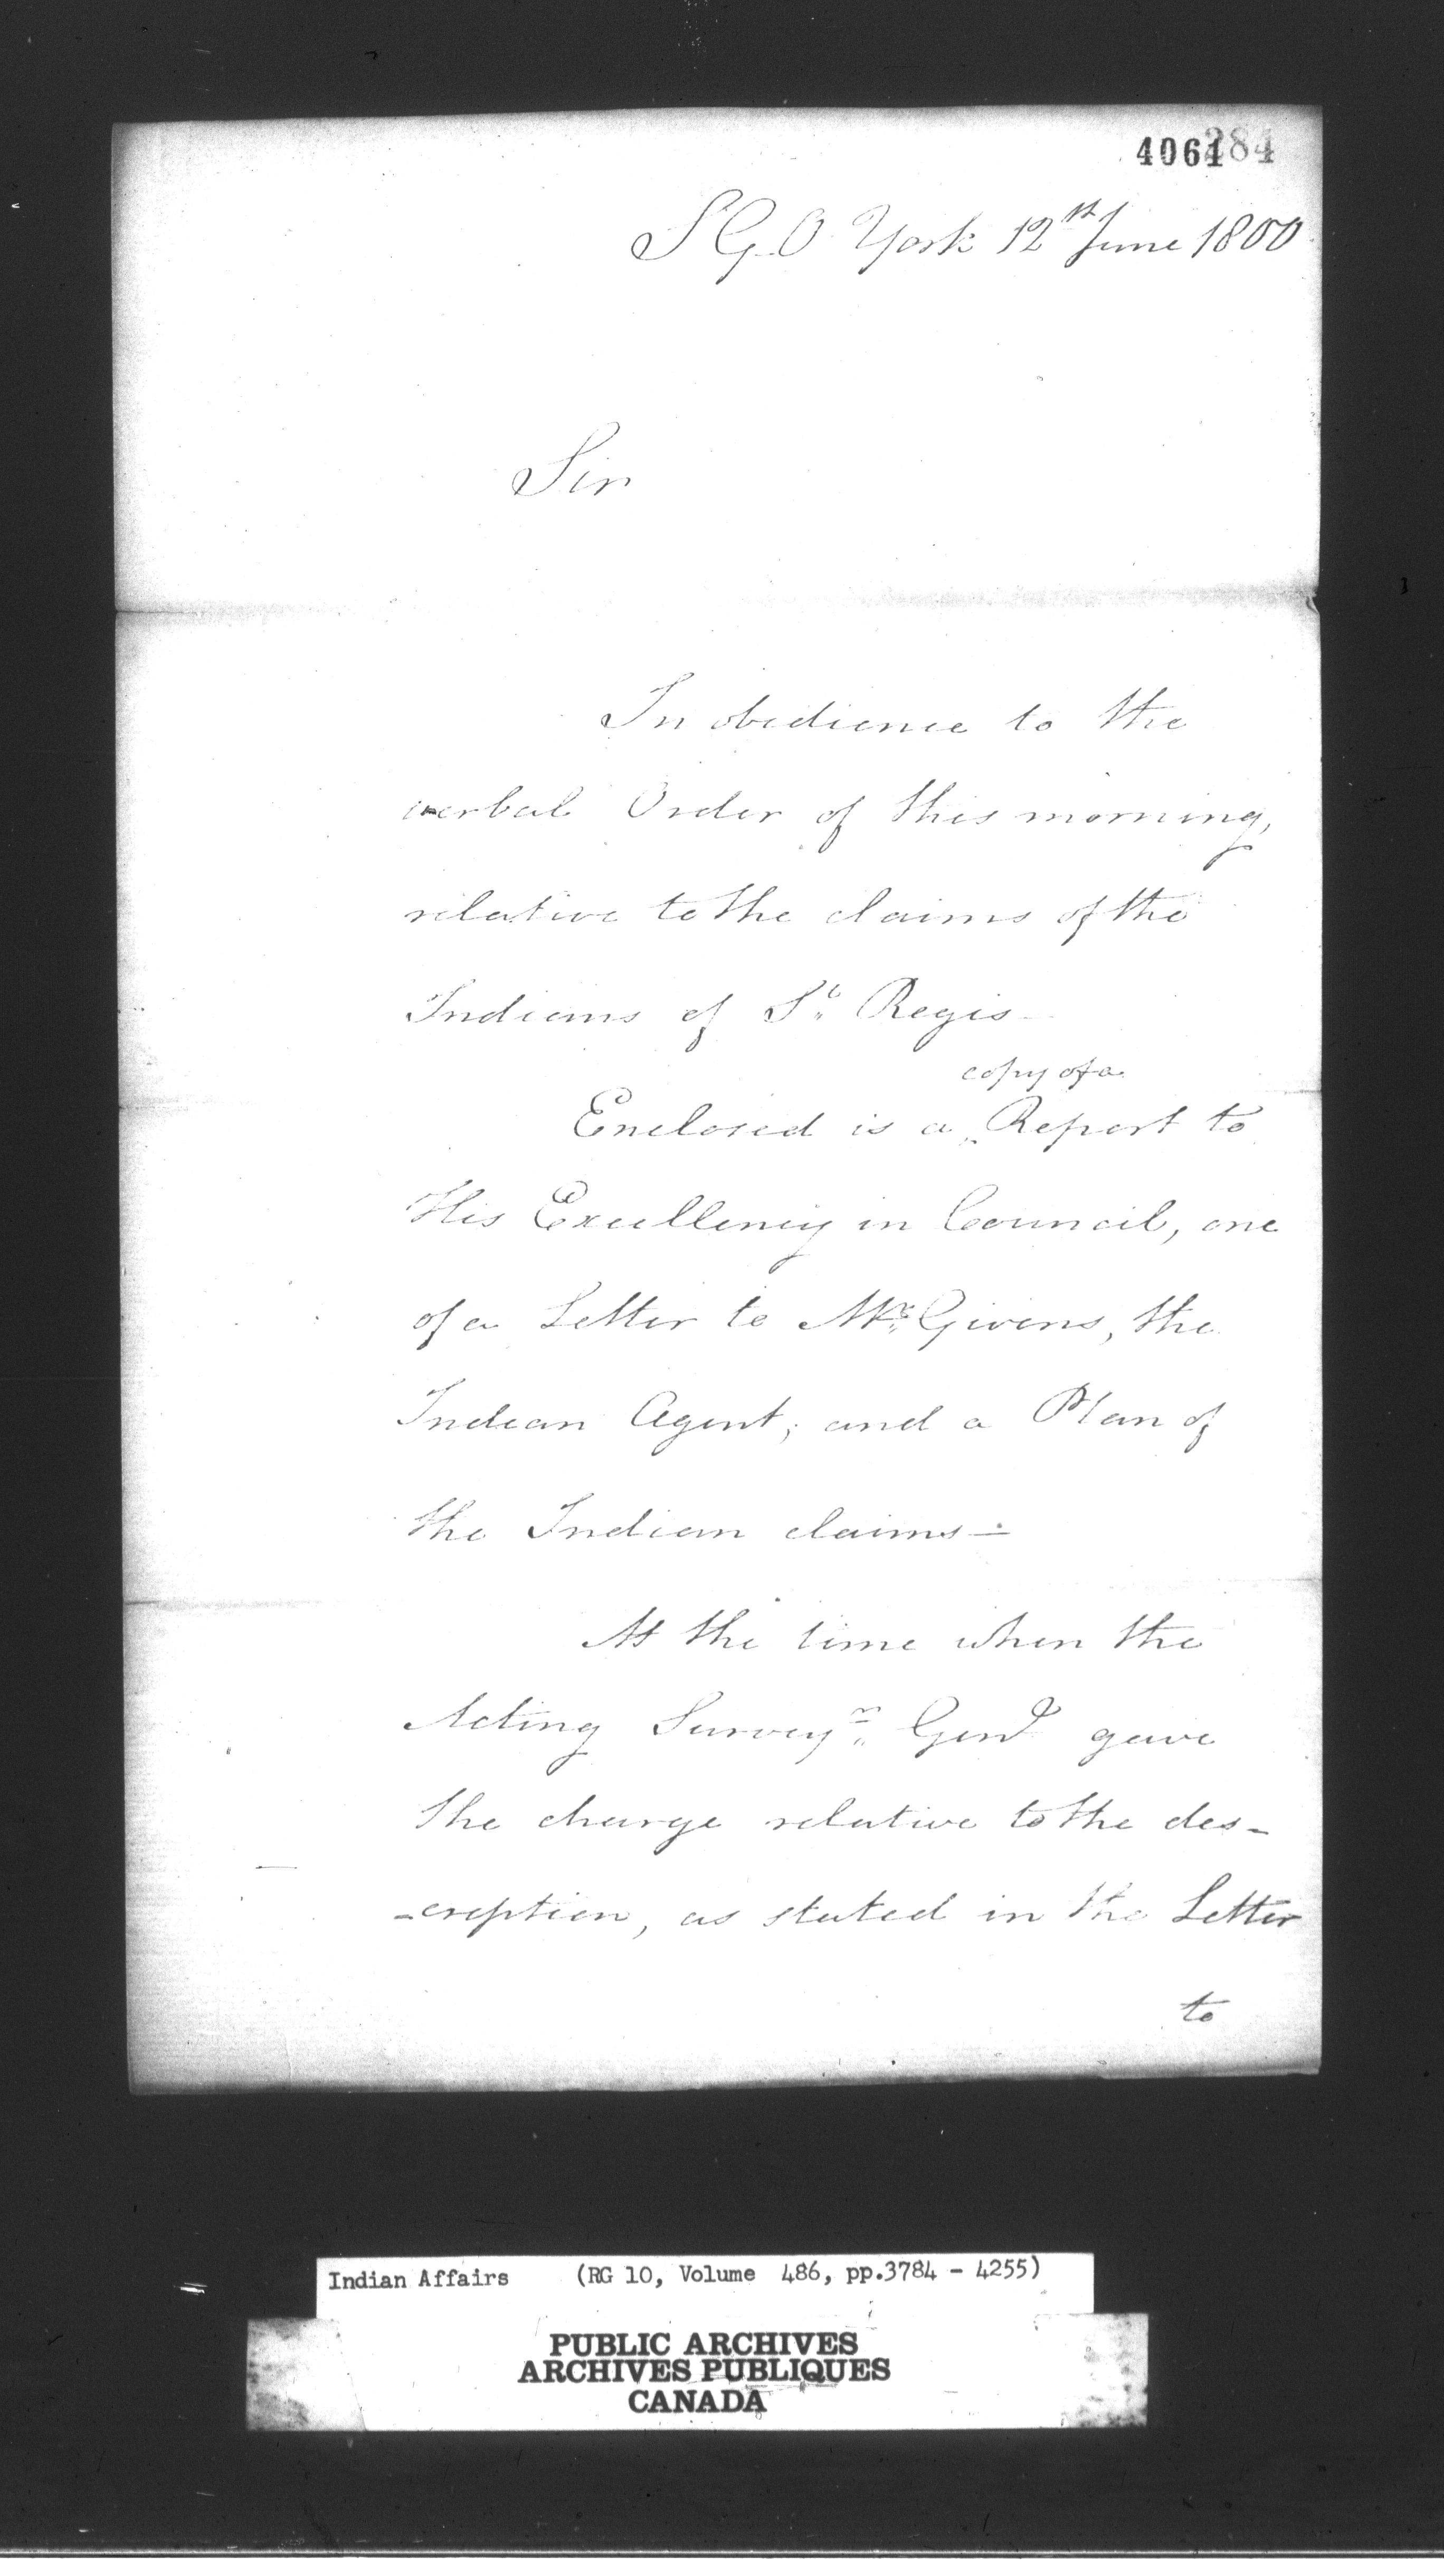 4061 284
S G O York 12th June 1800
Sir
In obedience to the
verbal Order of this morning,
relative to the claims of the
Indians of St. Regis—
copy of a
Enclosed is a ‸ Report to
His Excellency in Council, one
of a Letter to Mr. Givens, the
Indian Agent; and a Plan of
the Indian claims—
At the time when the
Acting Surveyr. Genl gave
the charge relative to the des-
-cription, as stated in the Letter
to
Indian Affairs (RG 10, Volume 486, pp.3784 - 4255)
PUBLIC ARCHIVES
ARCHIVES PUBLIQUES
CANADA